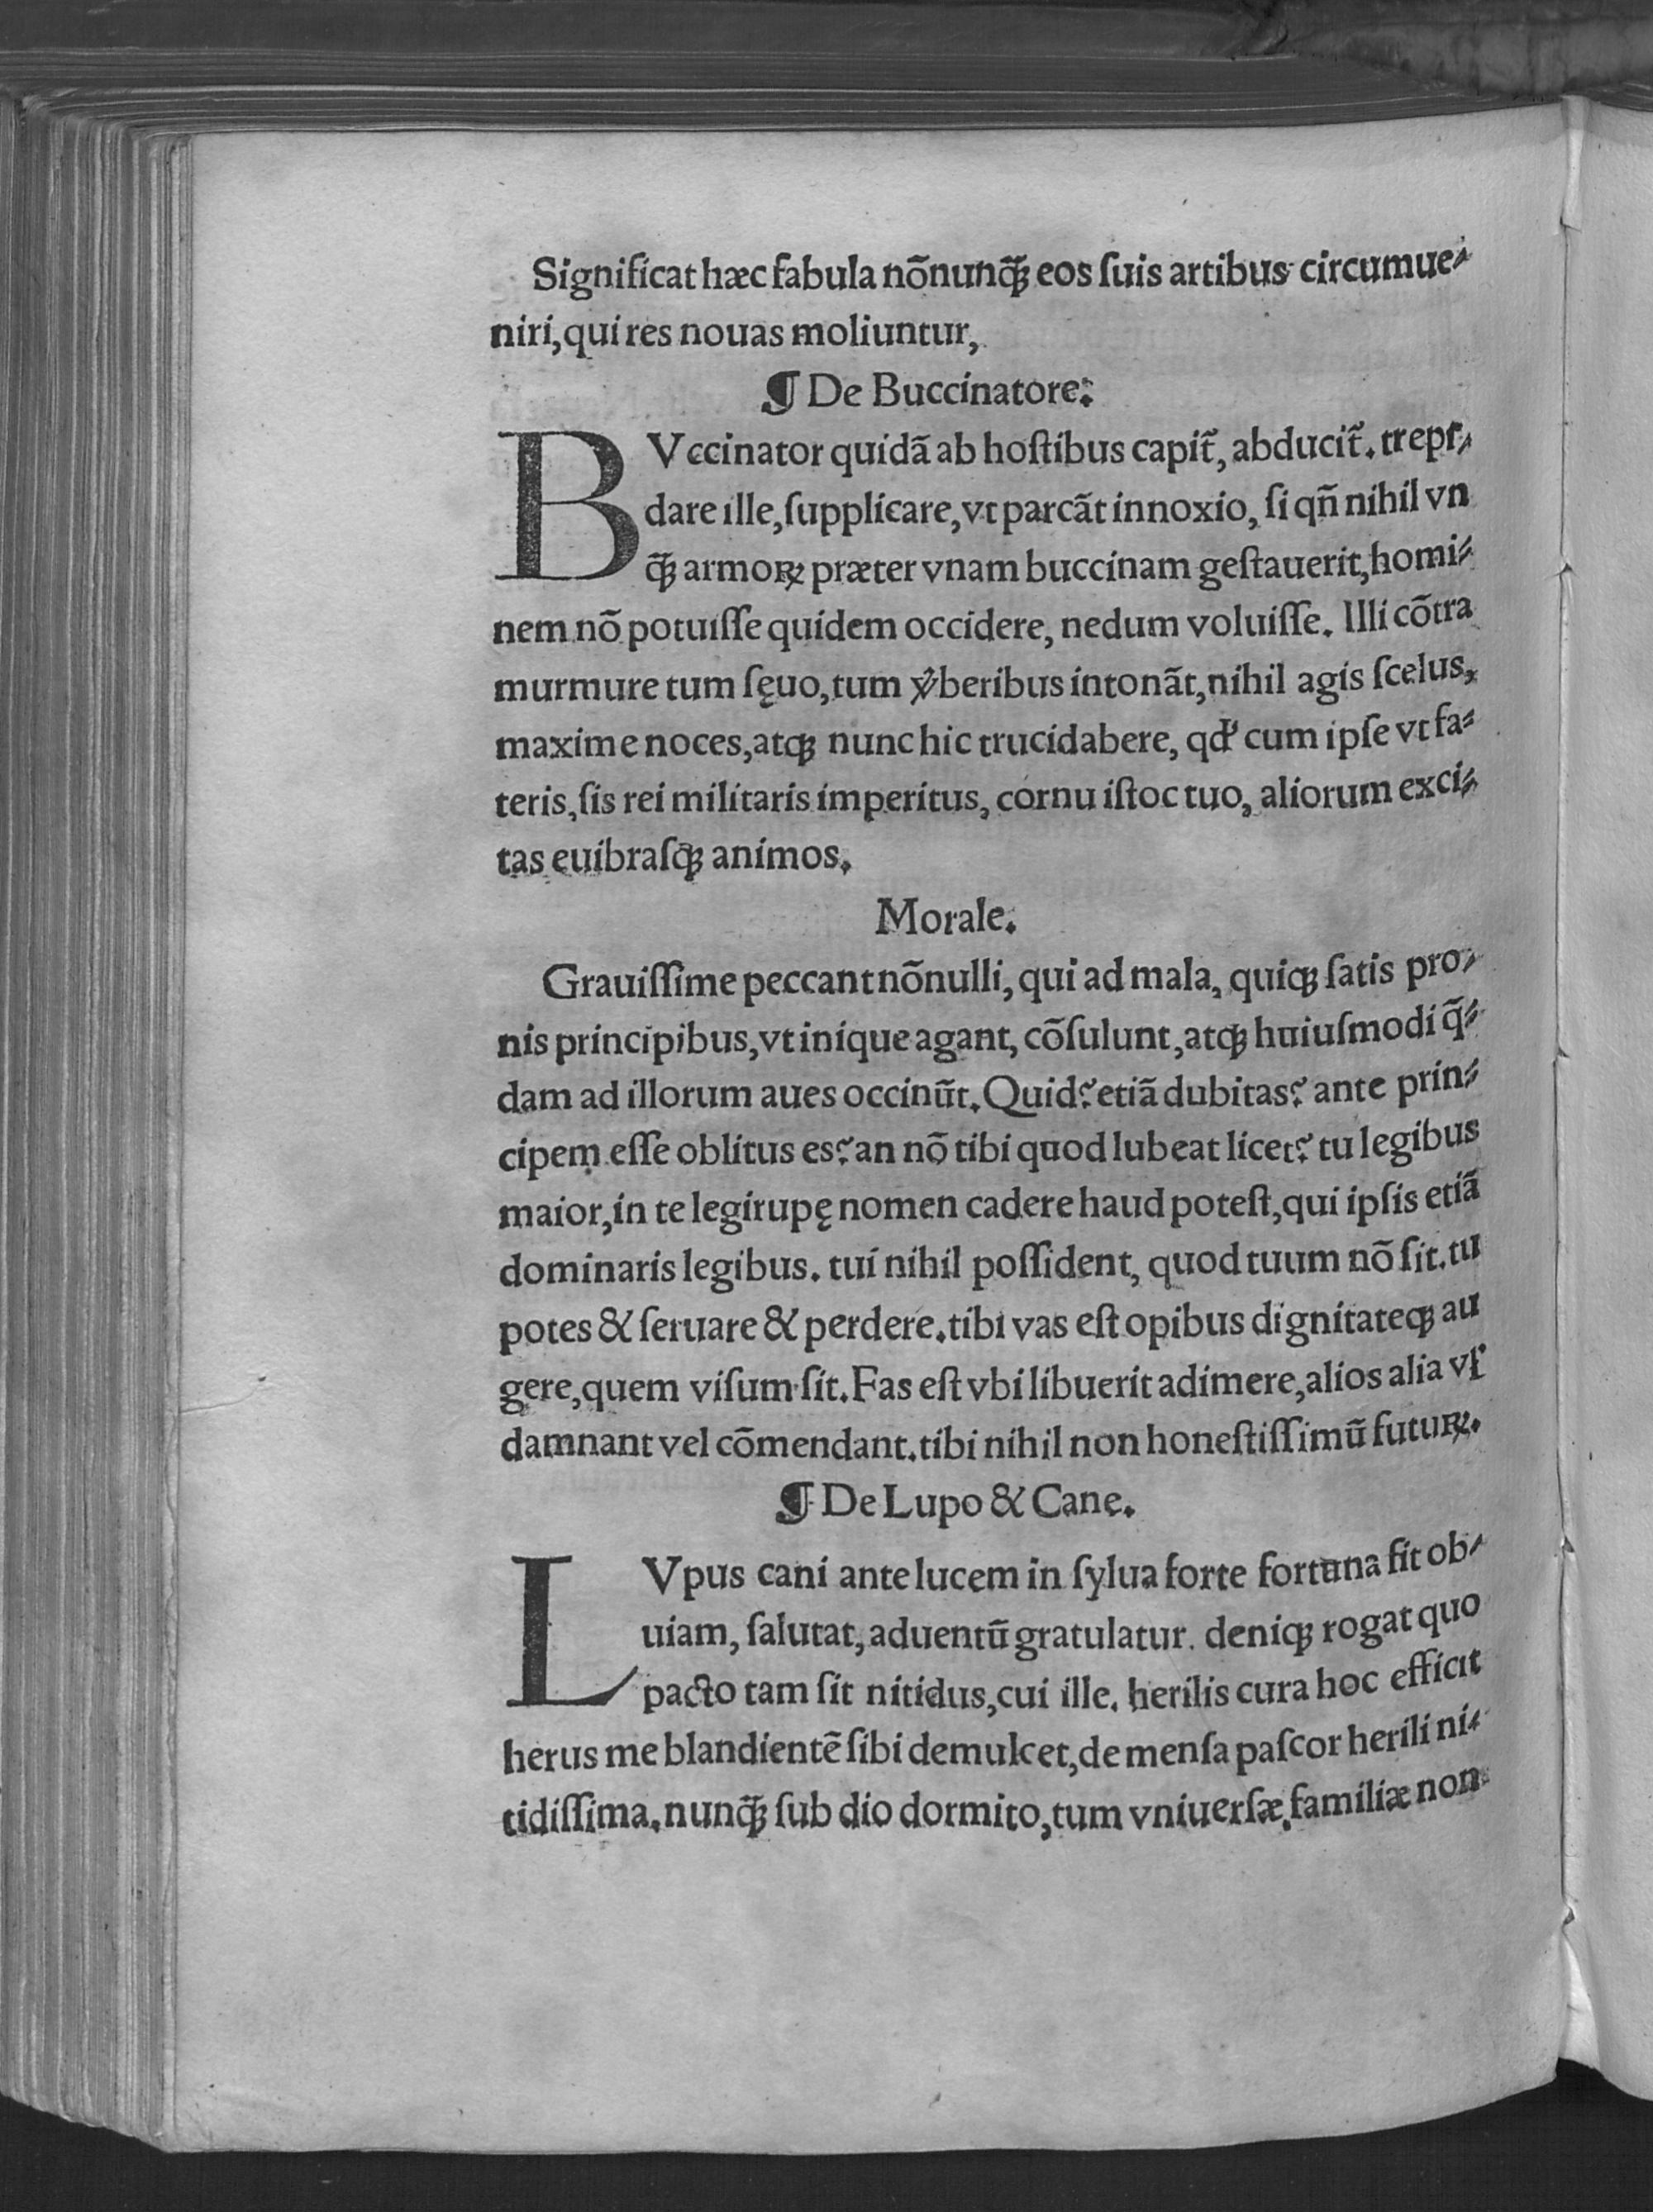 Significat hæc fabula nōnunq̃ꝫ eos ſuis artibus circumue⸗
niri, qui res nouas moliuntur,
¶ De Buccinatore:
BVccinator quidã ab hoſtibus capit̃, abducit̃. trepi⸗
dare ille, ſupplicare, vt parcãt innoxio, ſi qñ nihil vn
q̃ꝫ armoꝝ præter vnam buccinam geſtauerit, homi⸗
nem nō potuiſſe quidem occidere, nedum voluiſſe. Illi cōtra
murmure tum ſęuo, tum v̾beribus intonãt, nihil agis ſcelus,
maxime noces, atqꝫ nunc hic trucidabere, qd' cum ipſe vt fa⸗
teris, ſis rei militaris imperitus, cornu iſtoc tuo, aliorum exci⸗
tas euibraſqꝫ animos.
Morale.
Grauiſſime peccant nōnulli, qui ad mala, quiqꝫ ſatis pro⸗
nis principibus, vt inique agant, cōſulunt, atqꝫ huiuſmodi q̃⸗
dam ad illorum aues occinũt. Quid? etiã dubitas? ante prin⸗
cipem eſſe oblitus es? an nō tibi quod lubeat licet? tu legibus
maior, in te legirupę nomen cadere haud poteſt, qui ipſis etiã
dominaris legibus. tui nihil poſſident, quod tuum nō ſit. tu
potes & ſeruare & perdere. tibi vas eſt opibus dignitateqꝫ au
gere, quem viſum ſit. Fas eſt vbi libuerit adimere, alios alia vſ
damnant vel cōmendant. tibi nihil non honeſtiſſimũ futuꝝ.
¶ De Lupo & Cane.
LVpus cani ante lucem in ſylua forte fortuna fit ob⸗
uiam, ſalutat, aduentũ gratulatur. deniqꝫ rogat quo
pacto tam ſit nitidus, cui ille. herilis cura hoc efficit
herus me blandientẽ ſibi demulcet, de menſa paſcor herili ni⸗
tidiſſima. nunq̃ꝫ ſub dio dormito, tum vniuerſæ familiæ non